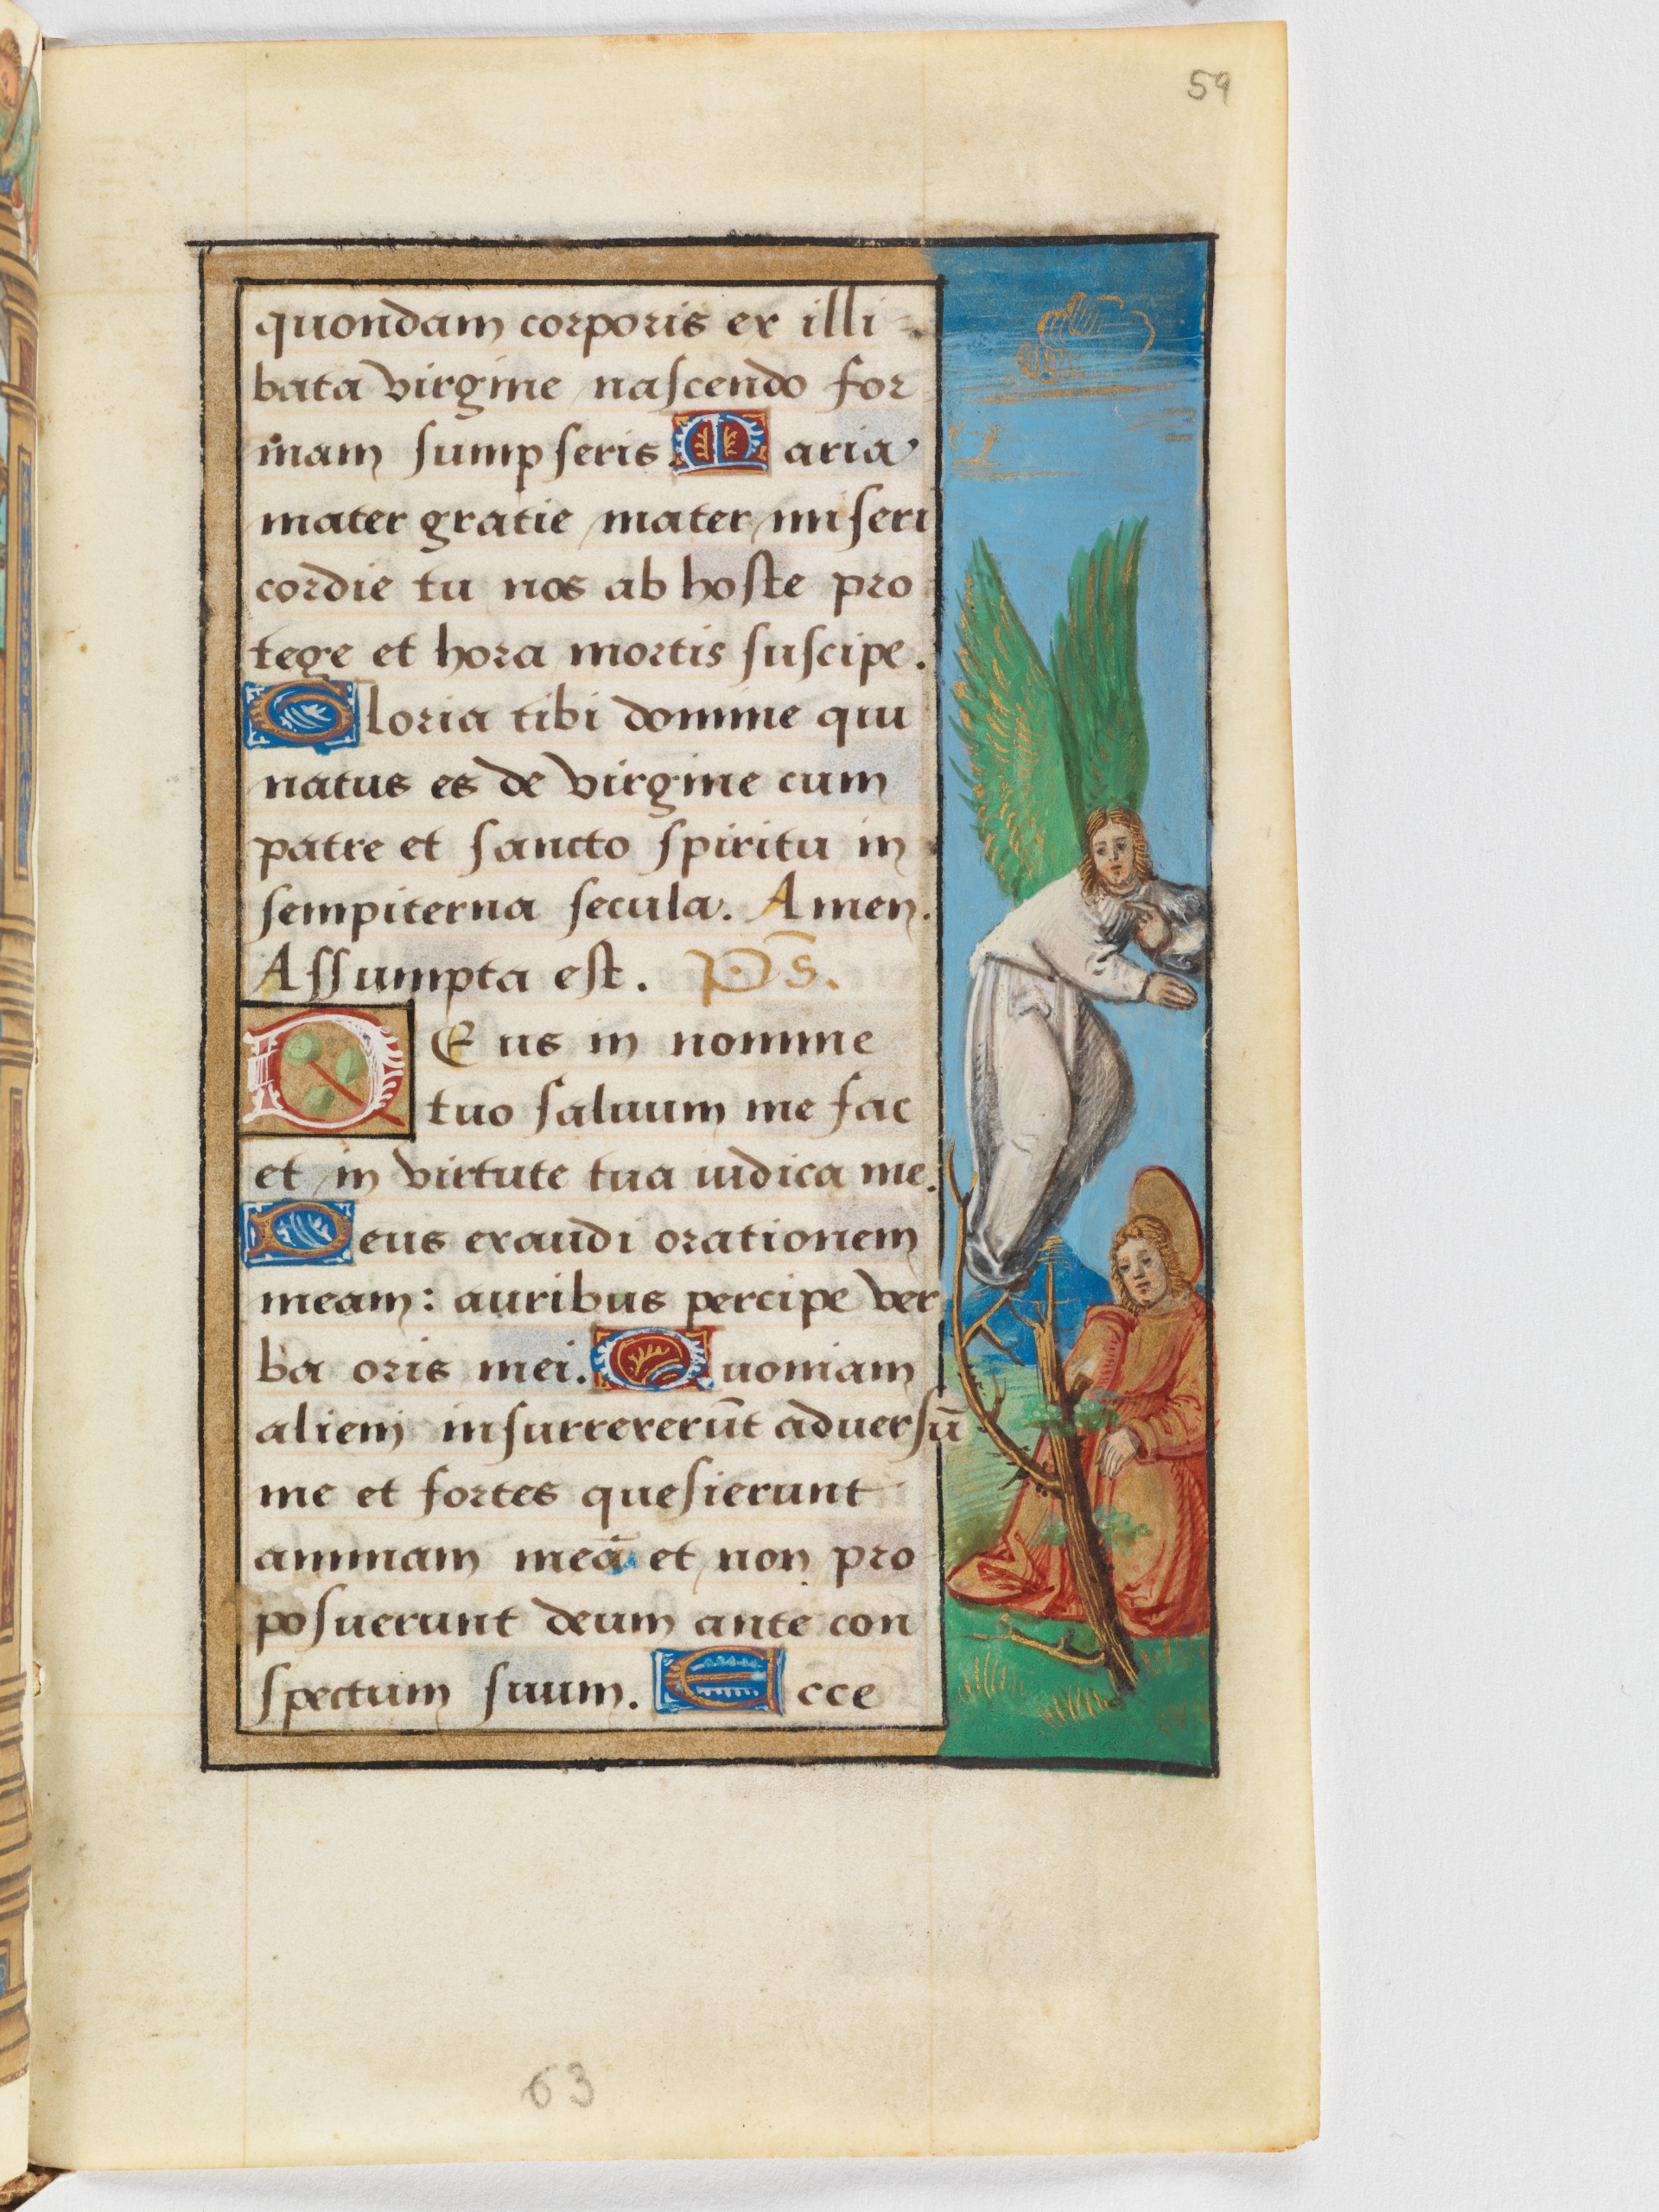 59
quondam corporis ex illi-
bata virgine nascendo for
mam sumpseris Maria
mater gratie mater miseri
cordie tu nos ab hoste pro
tege et hora mortis suscipe.
Gloria tibi domine qui
natus es de virgine cum
patre et sancto spiritu in
sempiterna secula. Amen.
Assumpta est. p̄s.
DEus in nomine
tuo saluum me fac
et in virtute tua iudica me.
Deus exaudi orationem
meam: auribus percipe ver
ba oris mei. Quoniam
alieni insurrexerūt aduersū
me et fortes quesierunt
animam meā et non pro
posuerunt deum ante con
spectum suum. Ecce
63